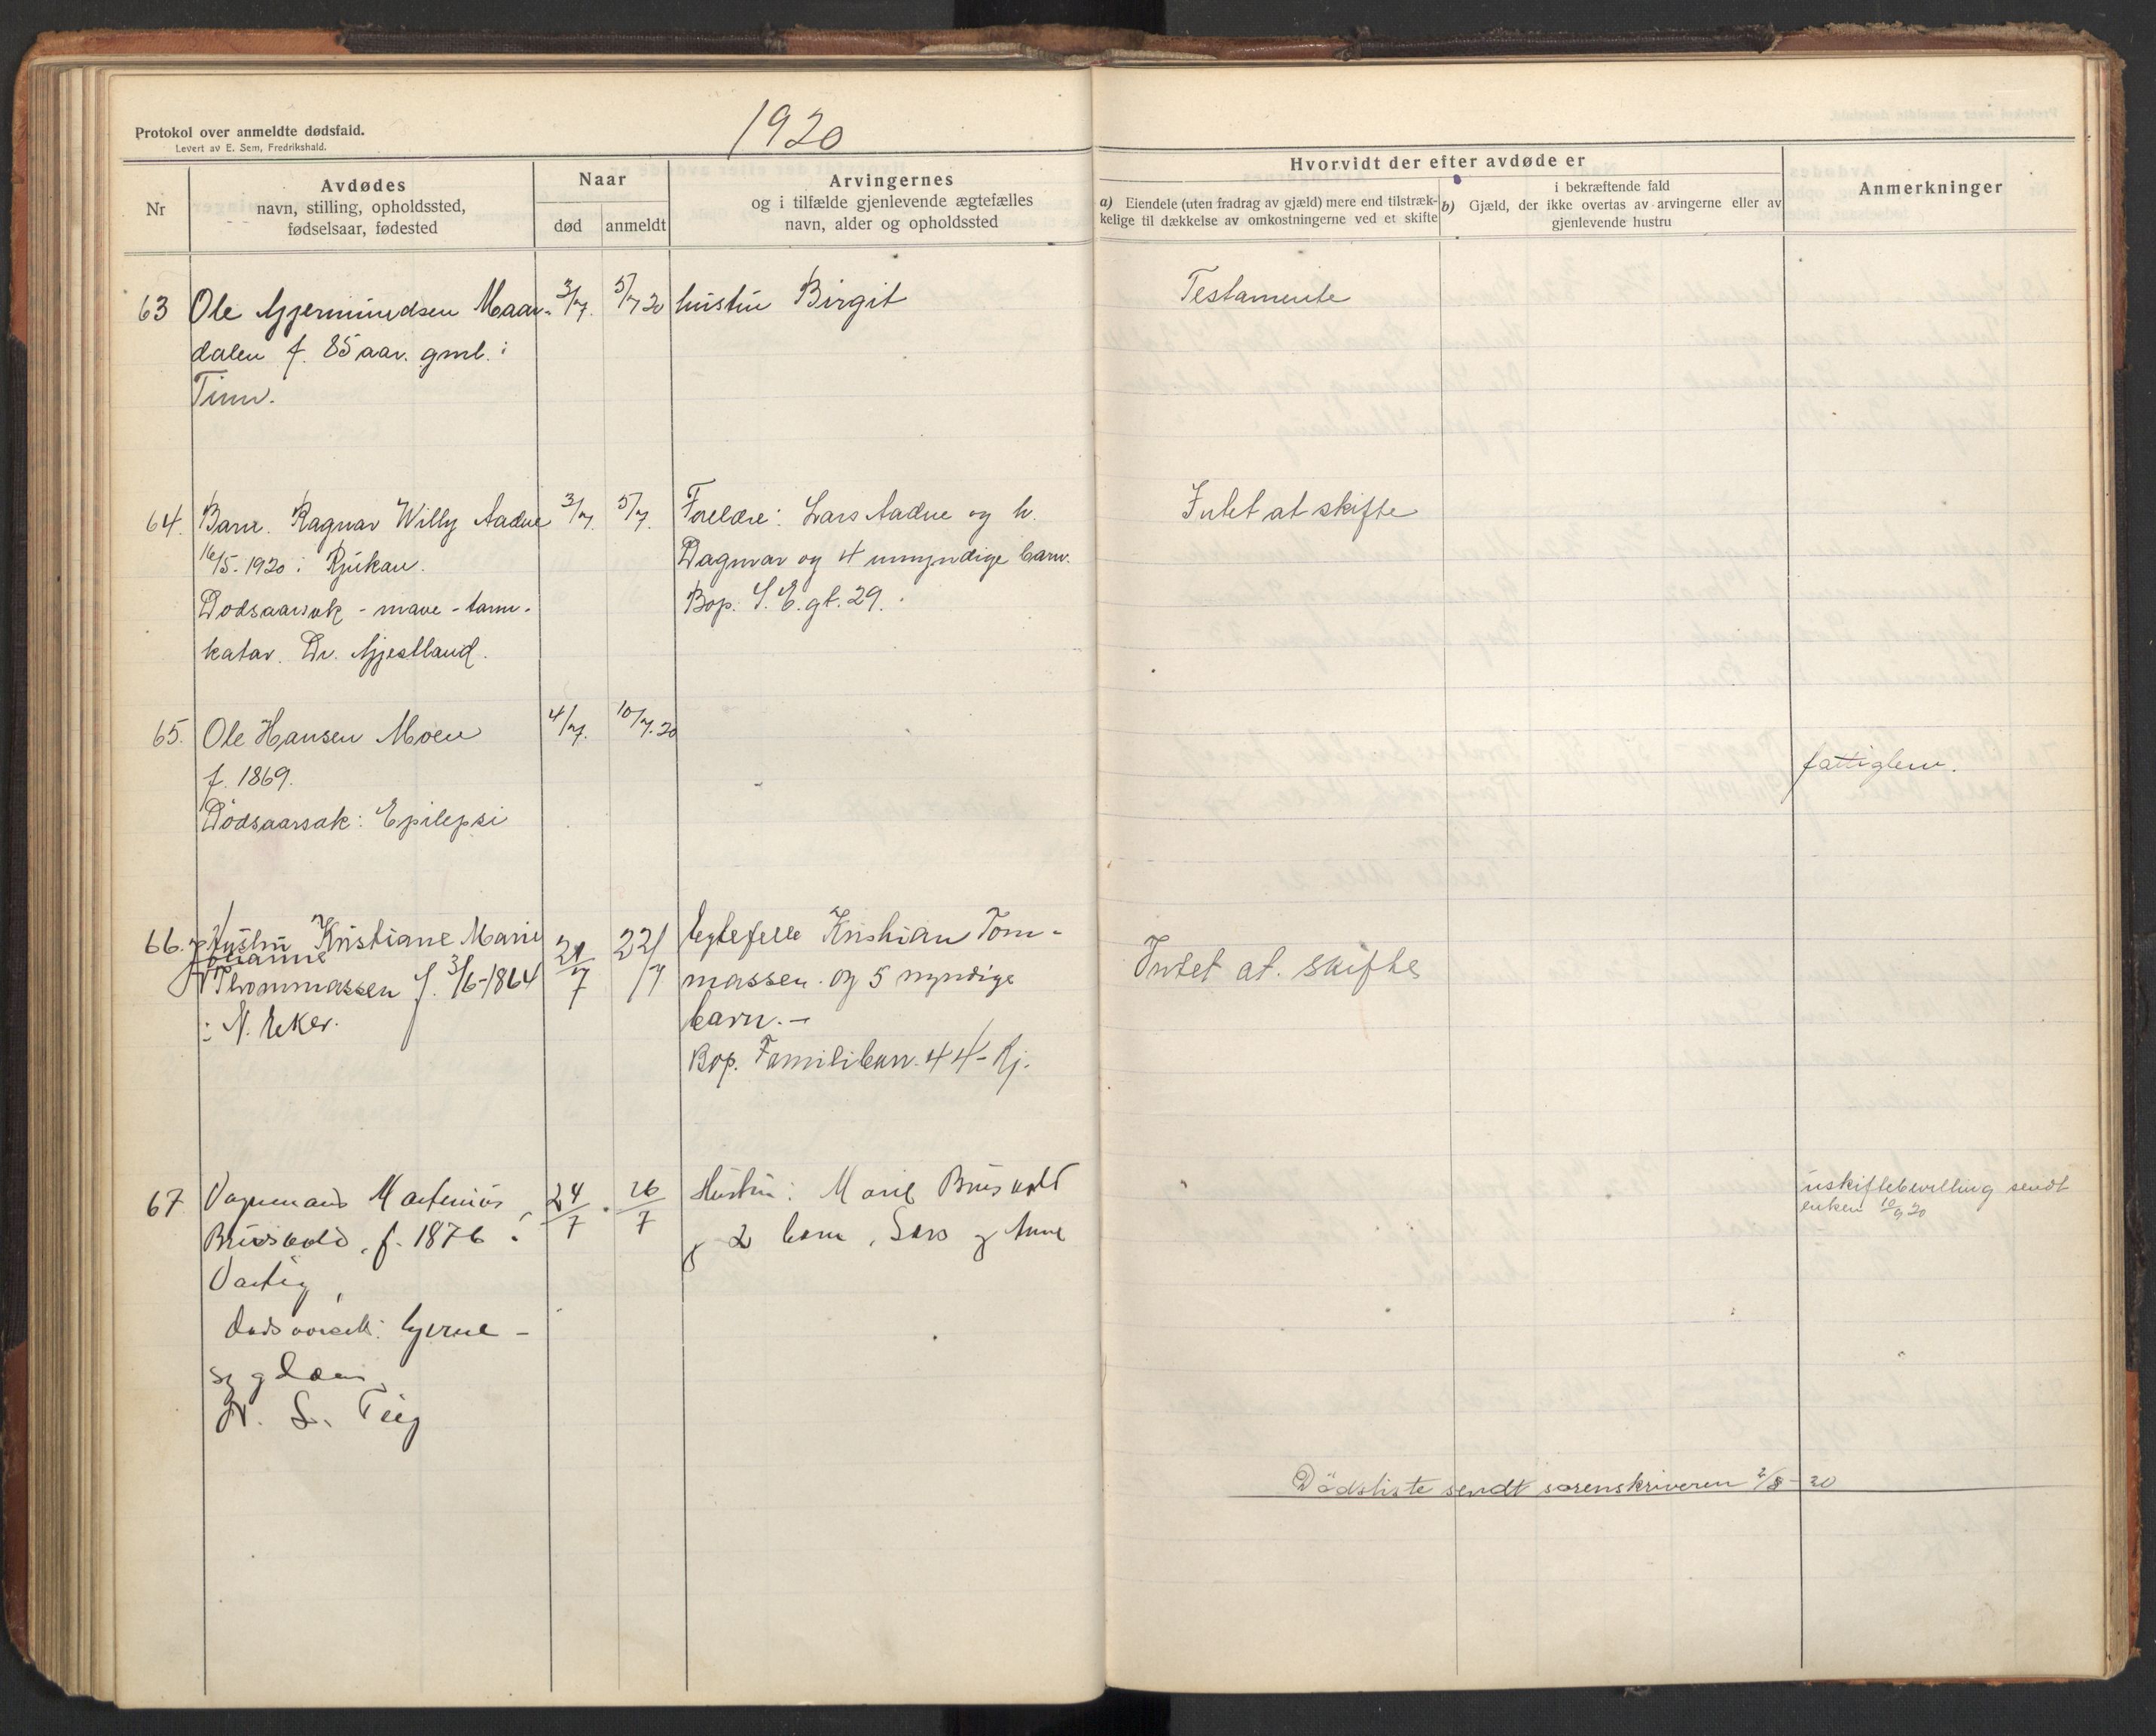 Protokol over anmeldte dødsfald.
Levert av E. Sem, Fredrikshald.
1920
Nr
Avdødes
navn, stilling, opholdssted,
fødselsaar, fødested
Naar
død
anmeldt
Arvingernes
og i tilfælde gjenlevende ægtefælles
navn, alder og opholdssted
Hvorvidt der efter avdøde er
a) Eiendele (uten fradrag av gjæld) mere end tilstræk-
kelige til dækkelse av omkostningerne ved et skifte
i bekræftende fald
b) Gjæld, der ikke overtas av arvingerne eller av
gjenlevende hustru
Anmerkninger
63 Ole Gjermundsen Maar- 3/7. 5/7 20 hustru Birgit Testamente
dalen f. 85 aar. gml. i
Tinn.
64. Barn. Ragnar Willy Aadne 3/7. 5/7. Foreldre: Lars Aadne og h. Intet at skifte
16/5-1920 i Rjukan. Dagmar og 4 umyndige barn.
Dødsaarsak - mave-tarm- Bop. S. E. gt. 29.
katar. Dr. Gjestland.
65. Ole Hansen Moen 4/7. 10/7.20
f. 1869. fattiglem.
Dødsaarsak: Epilepsi
66. Hustru Kristiane Marie 21/7 22/7 Egtefelle Kristian Tom- Intet at. skifte
Thommassen f. 3/6-1864 massen. og 5 myndige
i N. Eker. barn.-
Bop. Familibarr. 44- Rj.
67 Martenius 24/7. 26/7 Hustru: Marie uskiftebevilling sendt
enken 10/9 20
f. 1876 i og 2 barn, Lars og Anne
dødsaarsak: hjerne-
sygdom
Dødsliste sendt sorenskriveren 2/8-20